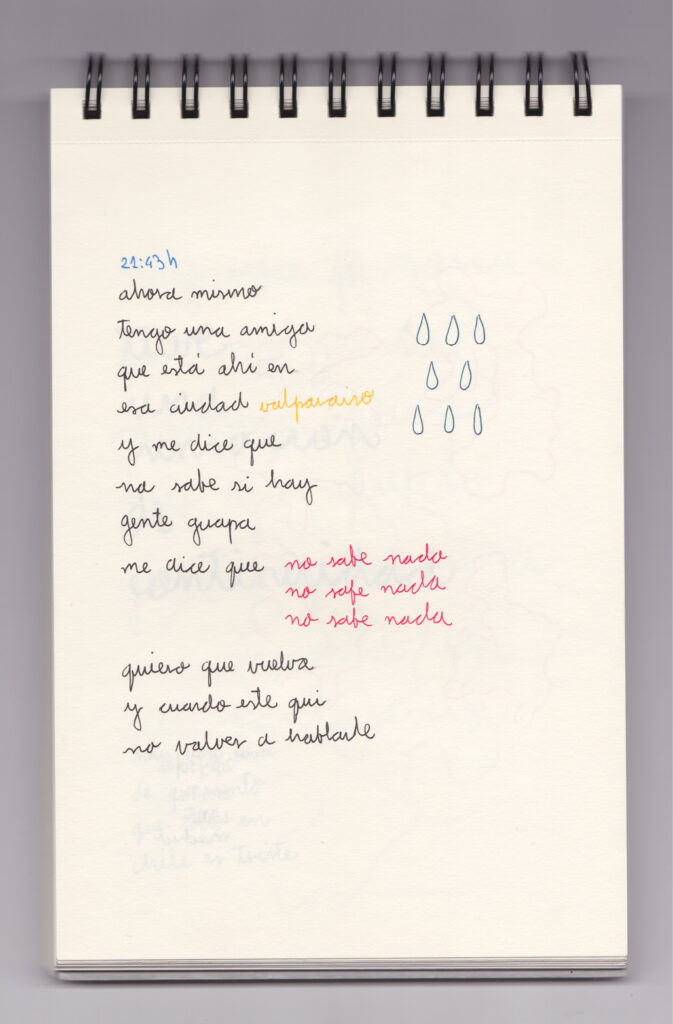 21:43h
ahora mismo
tengo una amiga
que está ahí en
esa ciudad valparaiso
y me dice que
na sabe si hay
gente guapa
me dice que no sabe nada
no safe nada
no sabe nada
quiero que vuelva
y cuando este qui
no valver a hablarle